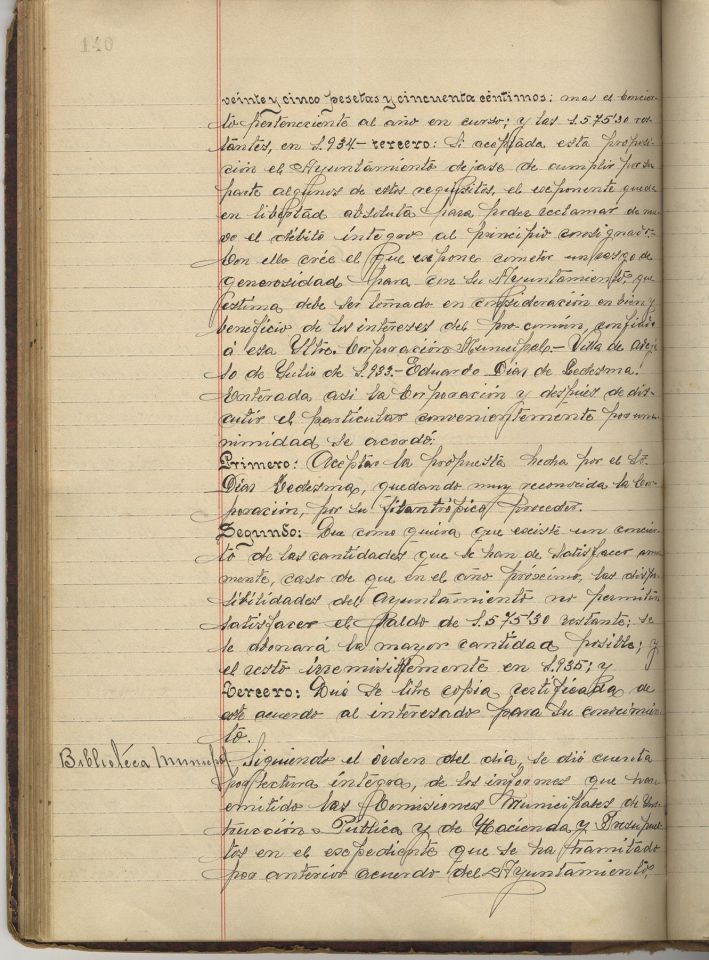 140
veinte y cinco pesetas y cincuenta céntimos: mas el concier-
to perteneciente al año en curso; y las 1.575'30 res-
tantes, en 1.934.- tercero: Si aceptada esta proposi-
ción el Ayuntamiento dejase de cumplir por su
parte algunos de estos requisitos, el exponente quede
en libertad absoluta para poder reclamar de nue-
vo el débito íntegro al principio consignado.-
Con ello crée el que expone cometer un rasgo de
generosidad para con su Ayuntamiento, que
estima debe ser tomado en consideración en bien y
beneficio de los intereses del pro-común, confiado
á esa Iltre. Corporación Municipal.- Villa de
de Julio de 1.933.- Eduardo Dias de Ledesma.
Enterada asi la Corporación y despues de dis-
cutir el particular convenientemente por una-
nimidad se acordó:
Primero: Aceptar la propuesta hecha por el Sr.
Dias Ledesma, quedando muy reconocida la Cor-
poración, por su filantrópico proceder.
Segundo: Que como quiera que existe un concier-
to de las cantidades que se han de satisfacer anual-
mente, caso de que en el año próximo, las dispo-
sibilidades del Ayuntamiento no permitan
satisfacer el saldo de 1.575'30 restante; se
le abonará la mayor cantidad posible; y
el resto irremisiblemente en 1.935; y
Tercero: Qué se libre copia certificada de
este acuerdo al interesado para su conocimien-
to.
Biblioteca Municipal. Siguiendo el órden del dia, se dió cuenta
por lectura íntegra, de los informes que han
emitido las Comisiones Municipales de Ins-
trucción Publica y de Hacienda y Presupues-
tos en el expediente que se ha tramitado
por anterior acuerdo del Ayuntamiento,